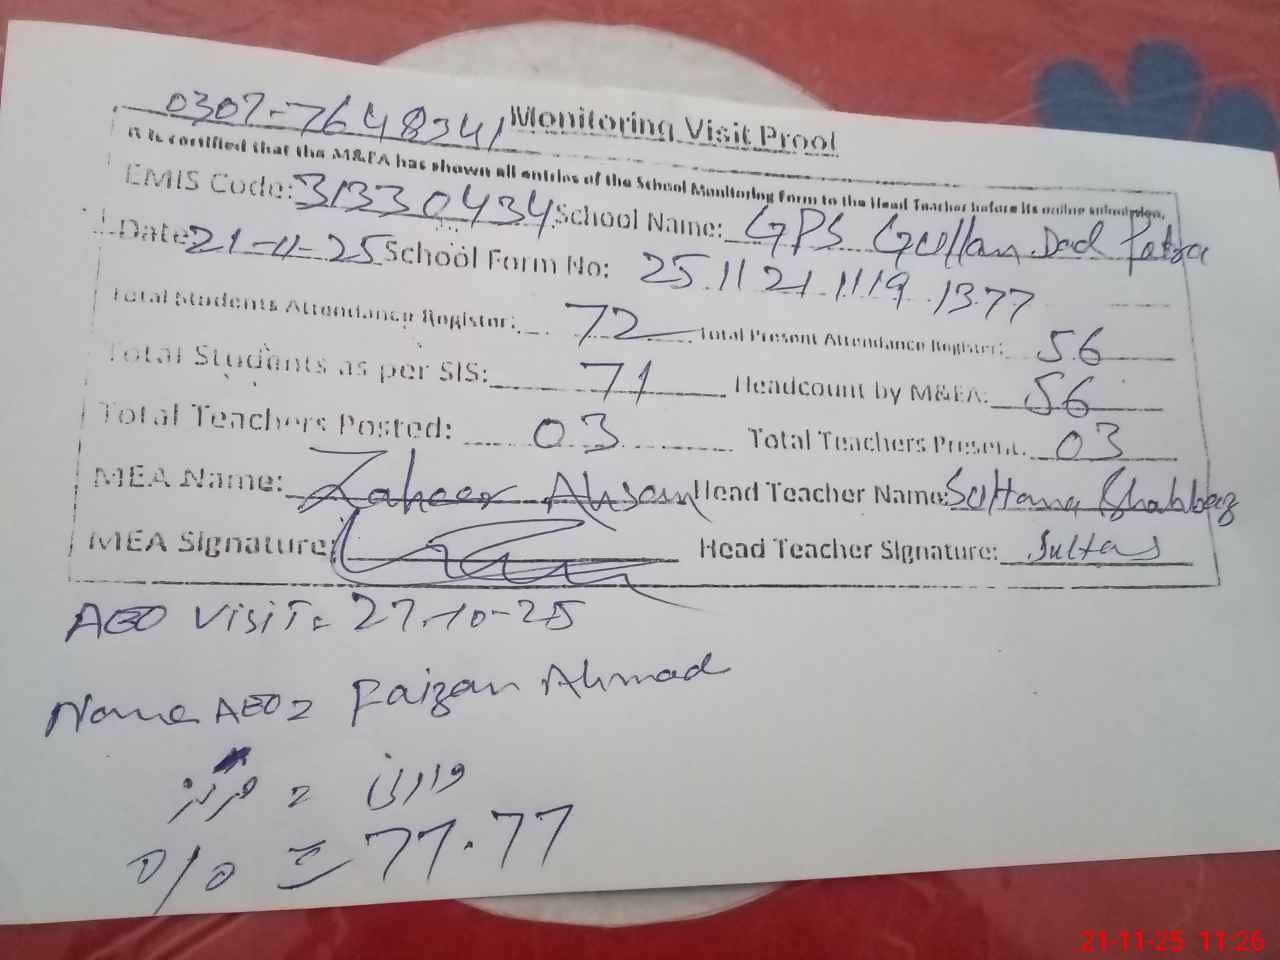 0307-7648341 Monitoring Visit Proof
It is certified that the M&EA has shown all entries of the School Monitoring Form to the Head Teacher before its online submission.
EMIS Code: 31330434 School Name: GPS Gullan Dad
Date 21-11-25 School Form No: 25 11 21 1119 1377
Total Students Attendance Register: 72 Total Present Attendance Register: 56
Total Students as per SIS: 71 Headcount by M&EA: 56
Total Teachers Posted: 03 Total Teachers Present: 03
MEA Name: Zaheer Ahsan Head Teacher Name: Sultana Shahbaz
MEA Signature: Head Teacher Signature: Sultas
AEO Visit = 27-10-25
Name AEO = Faizan Ahmad
مرکز =
% = 77.77
21-11-25 11:26